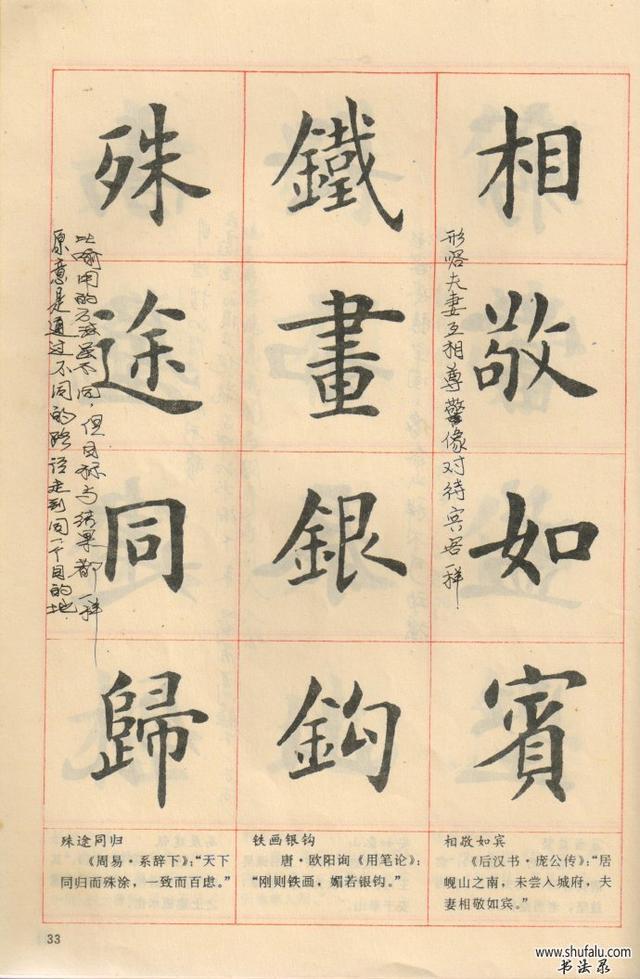 相敬如賓
形容夫妻互相尊警像对待宾客一样
鐵畫銀鈎
殊途同歸
比喻用的方法虽不同，但目标与结果都一样
原意是通过不同的路径走到同一个目的地
相敬如宾
《后汉书·庞公传》：“居
岘山之南，未尝入城府，夫
妻相敬如宾。”
铁画银钩
唐·欧阳询《用笔论》：
“刚则铁画，媚若银钩。”
殊途同归
《周易·系辞下》：“天下
同归而殊涂，一致而百虑。”
33
www.shufalu.com
书法录